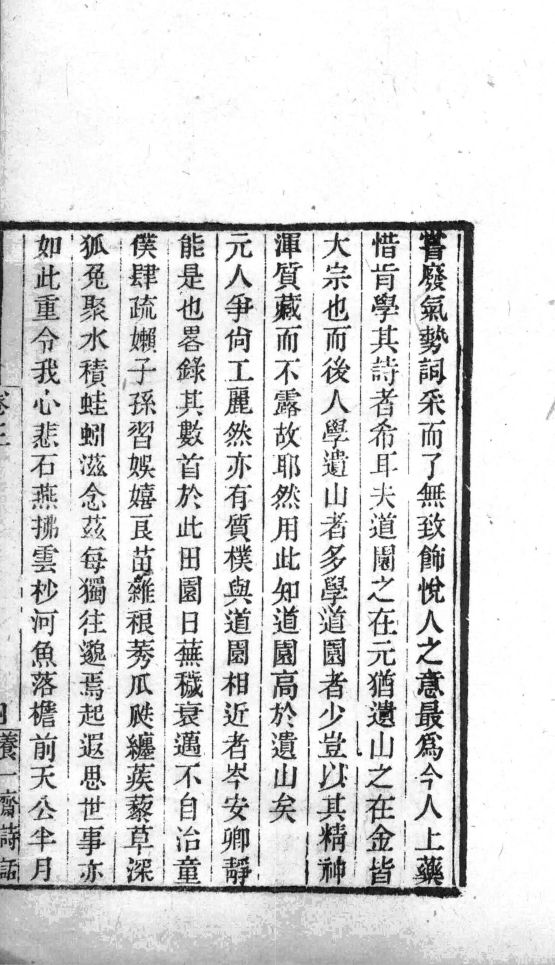 嘗廢氣勢詞采而了無致飾悅人之意最爲今人上藥
惜肯學其詩者希耳夫道園之在元猶遺山之在金皆
大宗也而後人學遺山者多學道園者少豈以其精神
渾質藏而不露故耶然用此知道園高於遺山矣
元人爭尙工麗然亦有質樸與道園相近者岑安卿靜
能是也畧錄其數首於此田園日蕪穢衰邁不自治童
僕肆疏嬾子孫習娛嬉良苗雜稂莠瓜瓞纏蒺藜草深
狐兔聚水積蛙蚓滋念茲每獨往邈焉起遐思世事亦
如此重令我心悲石燕拂雲杪河魚落檐前天公半月
養一齋詩話